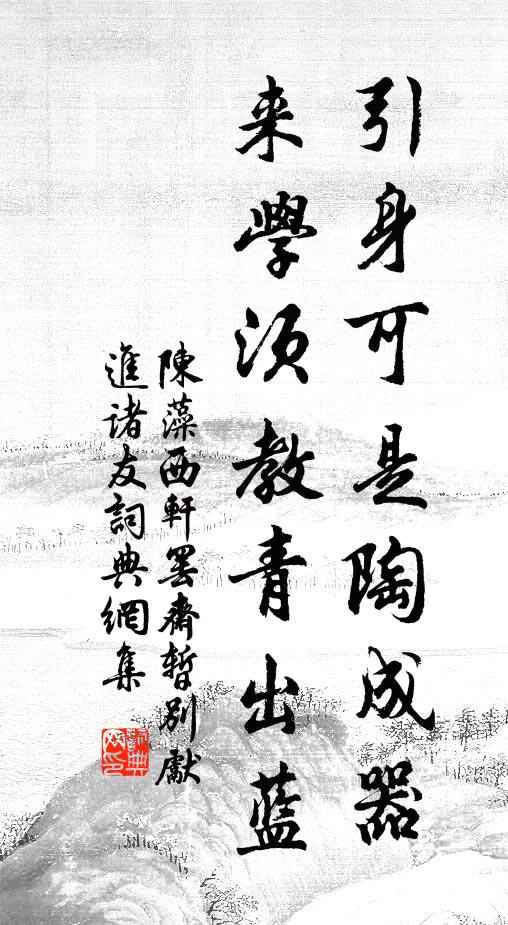 引身可是陶成器
来學須教青出藍
陳藻西軒罢齋暫別獻
進诸友詞典網集